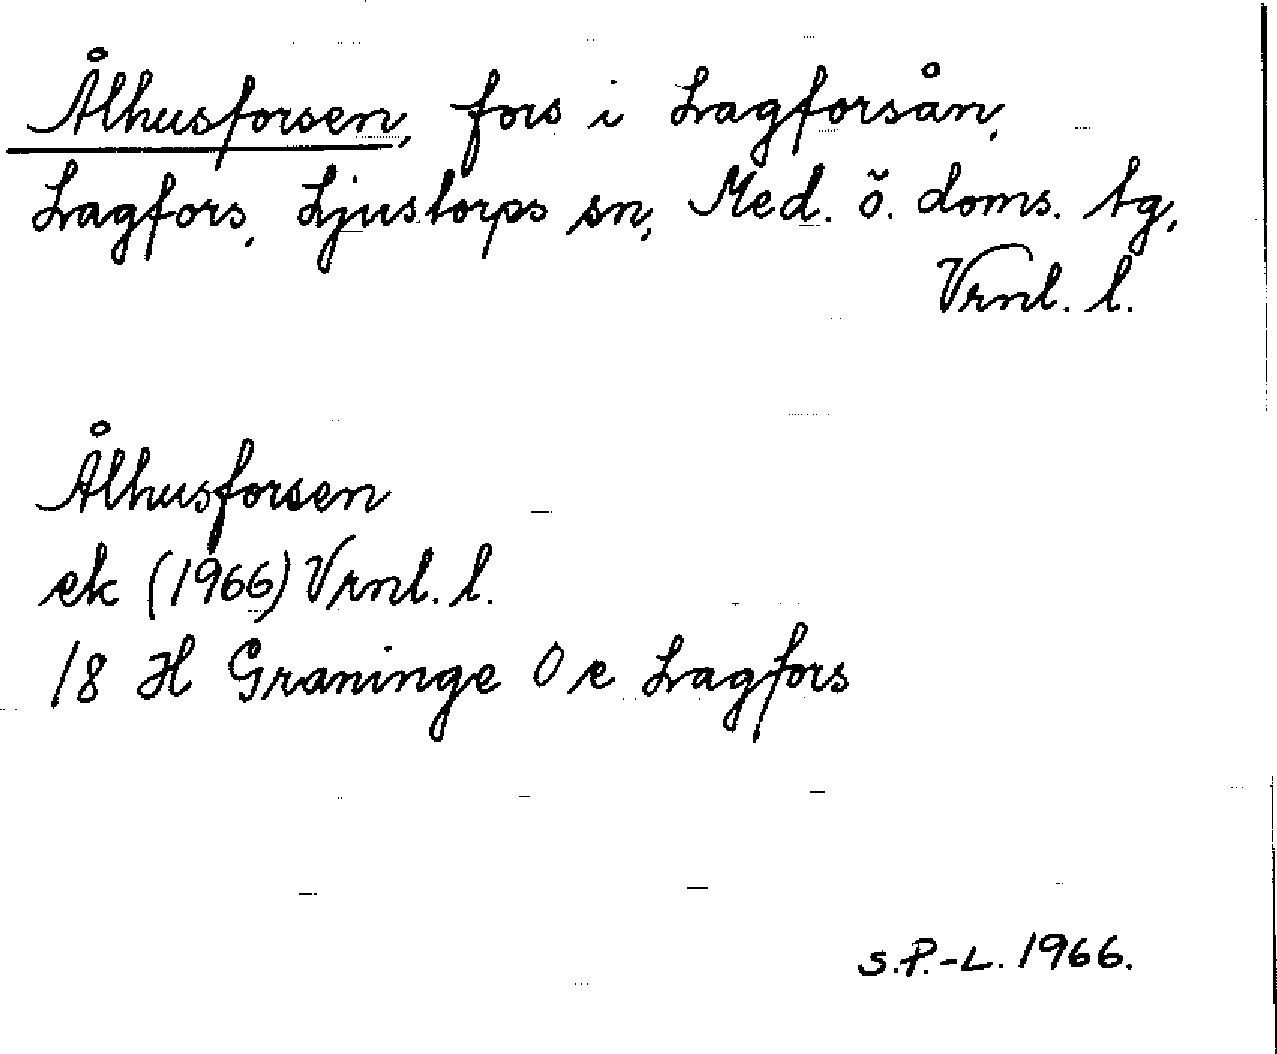 Ålhusforsen, fors i Lagforsån,
Lagfors, Ljustorps sn, Med. ö. doms. tg,
Vrnl. l.
Ålhusforsen
ek (1966) Vrnl. l.
18 H Graninge 0 e Lagfors
S.P.-L. 1966.